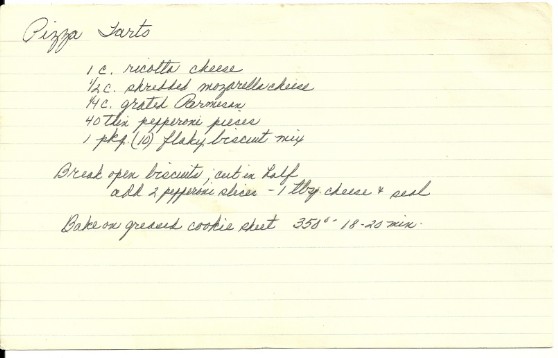 Pizza Tarts
1 c. ricotta cheese
1/2 c. shredded mozarella cheese
1/4 c. grated Parmesan
40 thin pepperoni pieces
1 pkg. (10) flaky biscuit mix
Break open biscuits, cut in half
add 2 pepperoni slices - 1 tbsp cheese & seal
Bake on greased cookie sheet 350° - 18-20 min.